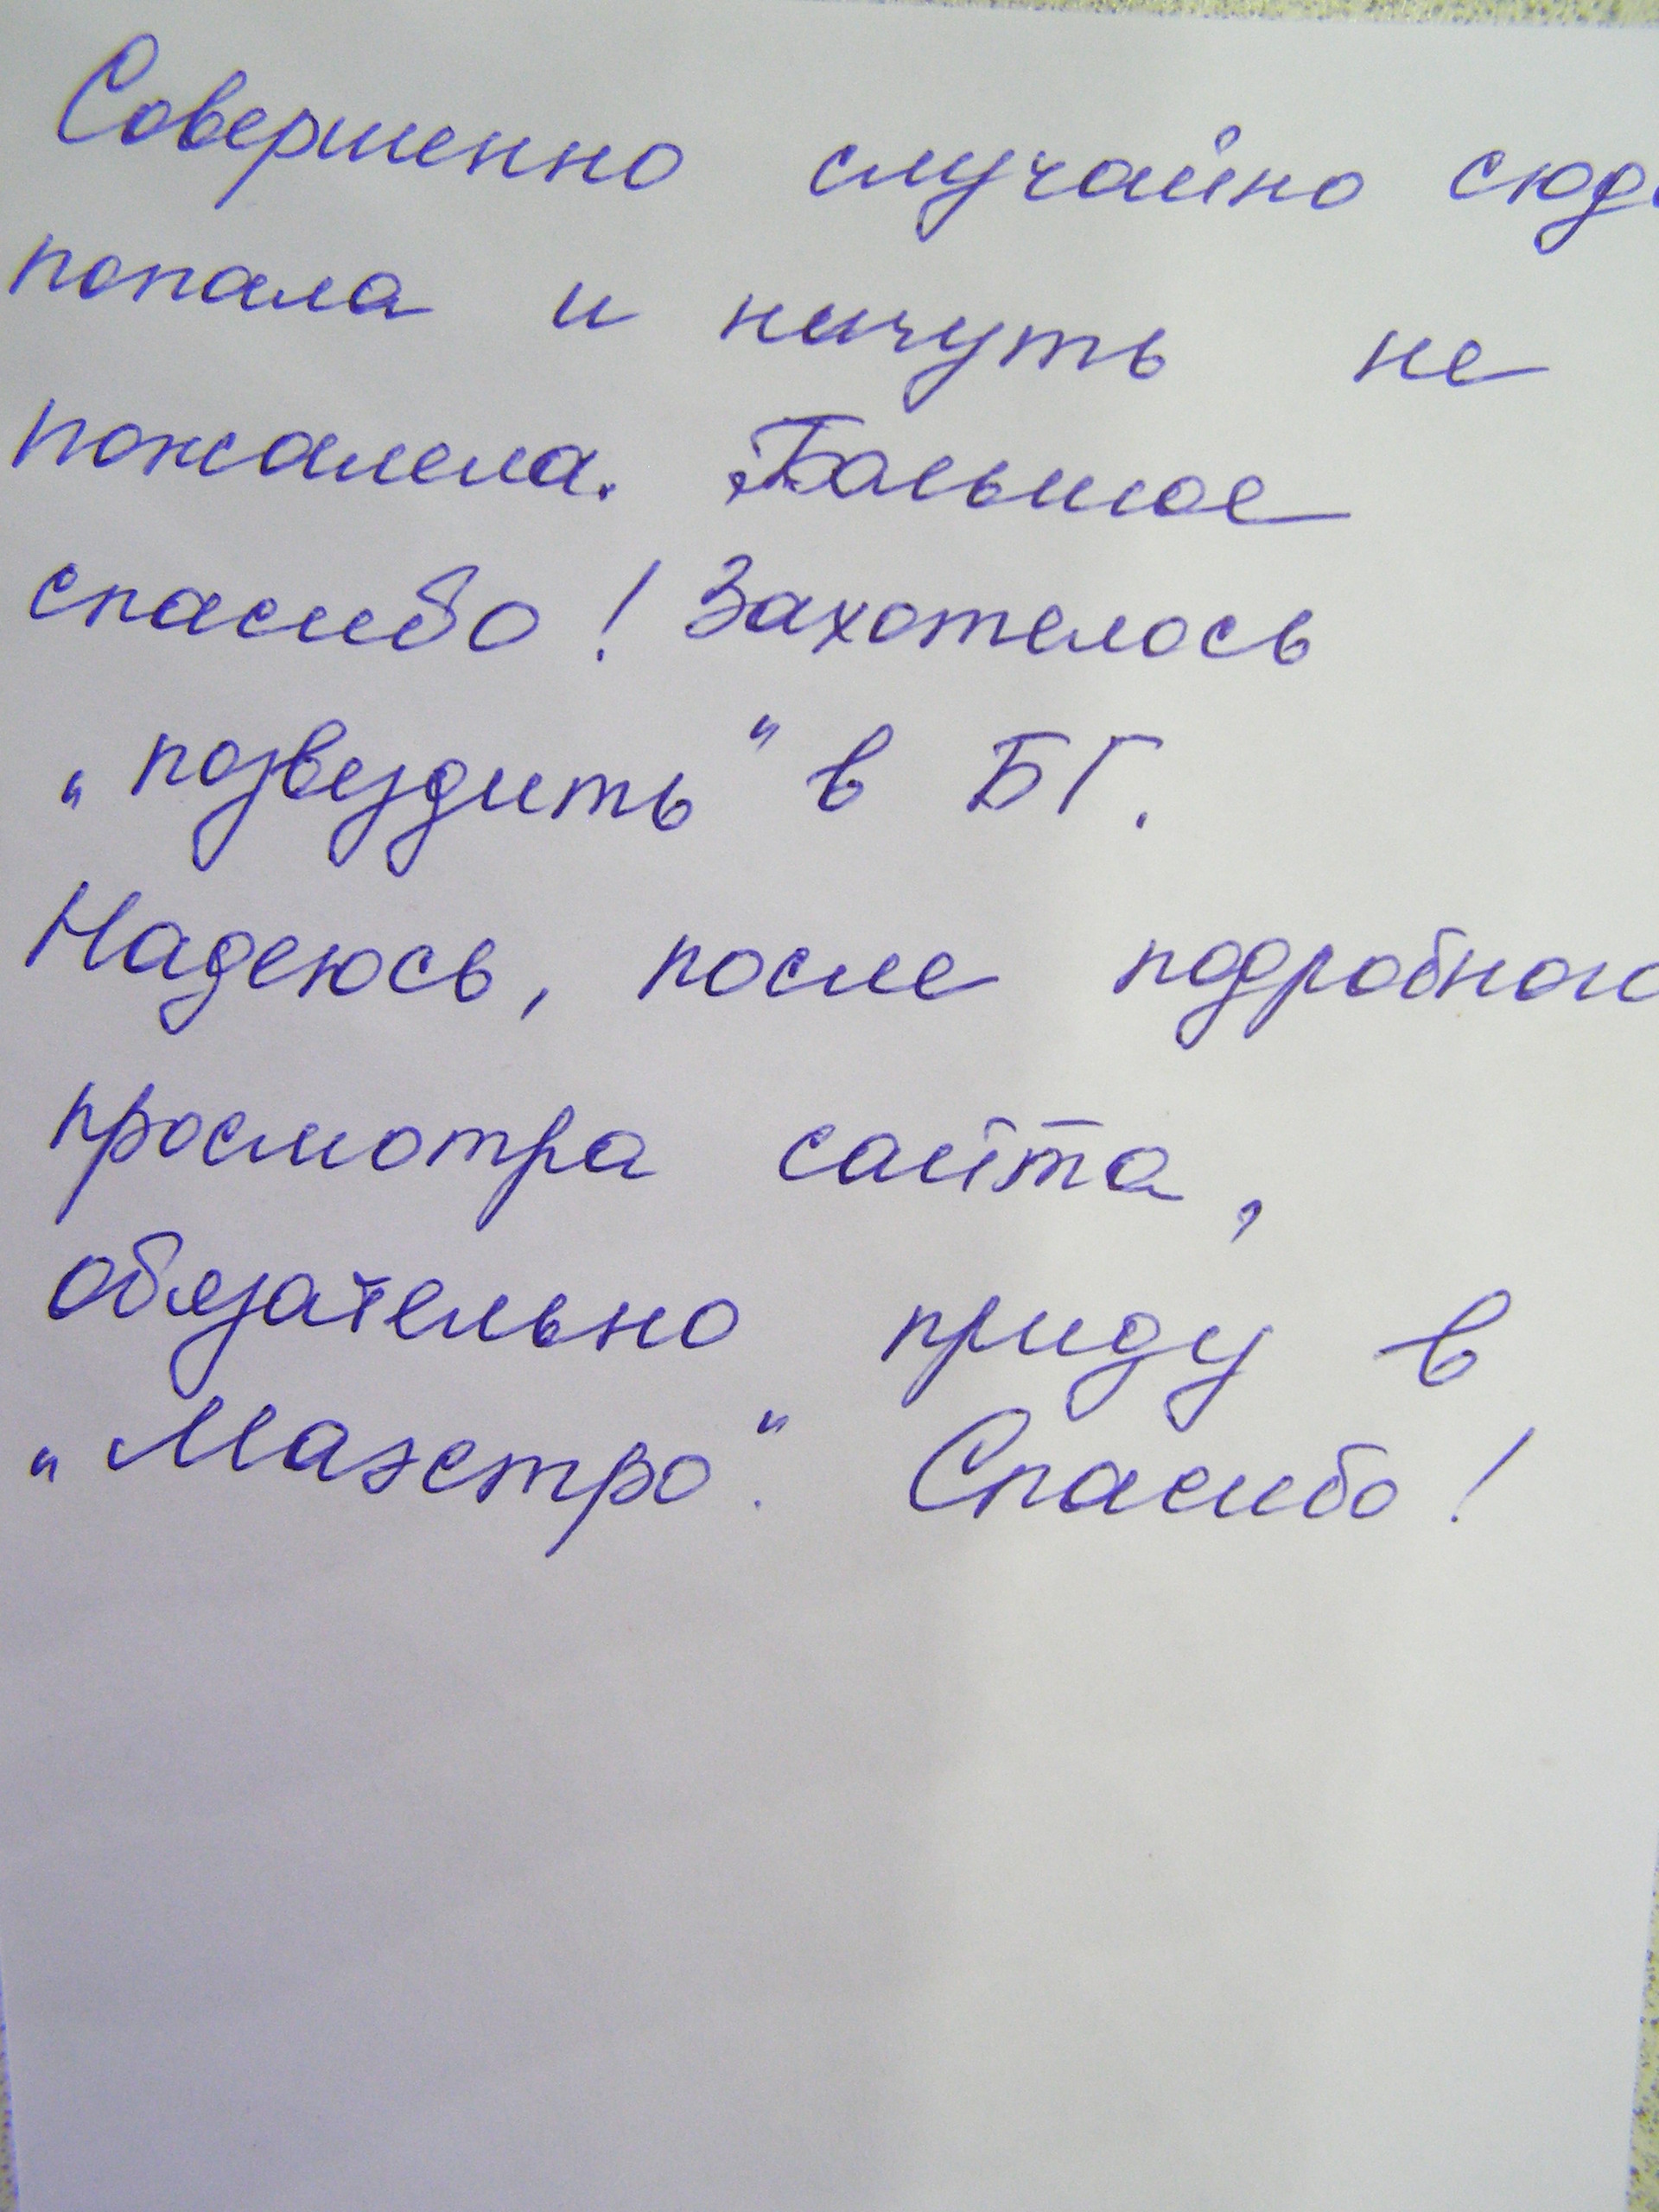 Совершенно случайно сюда
попала и ничуть не
пожалела. Большое
спасибо! Захотелось
„позвездить“ в БГ.
Надеюсь, после подробного
просмотра сайта,
обязательно приду в
„Маэстро“. Спасибо!